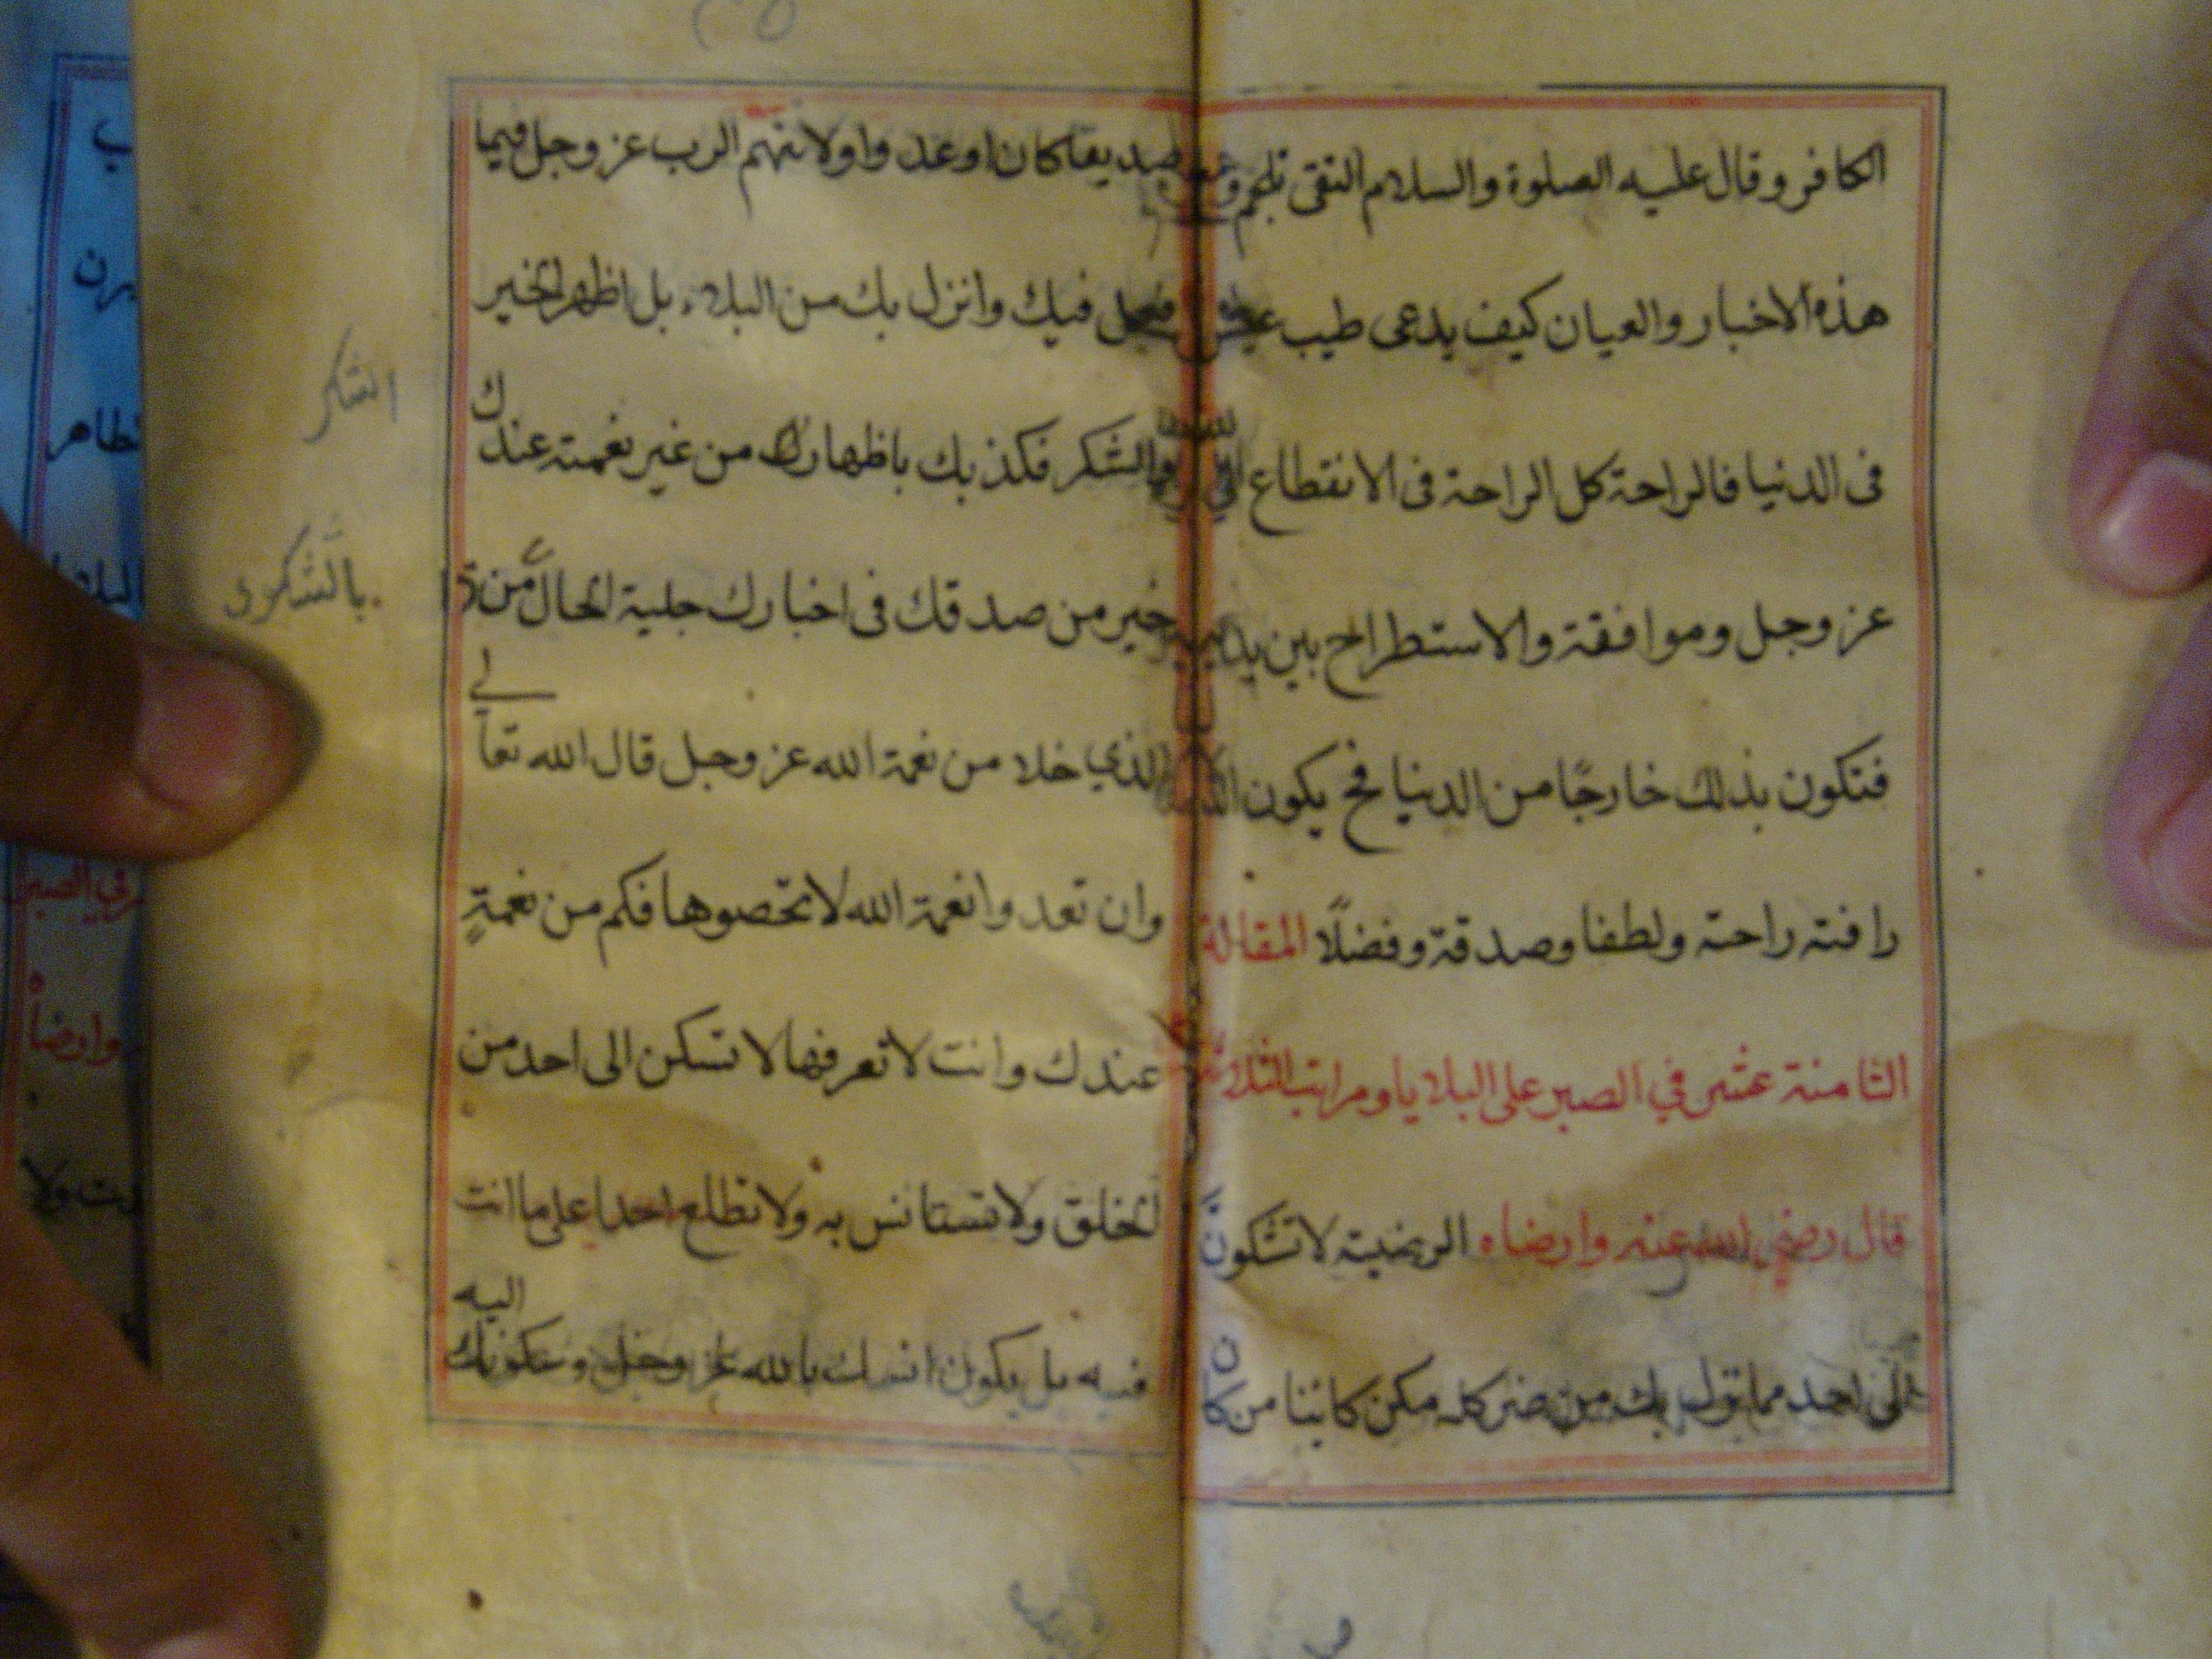 الكافر وقال عليه الصلوة والسلام التقى تلجم ومع
هذه الاخبار والعيان كيف يدعى طيب عيش
فى الدنيا فالراحة كل الراحة فى الانقطاع الى الله
عز وجل وموافقته والاستطراح بين يديه
فتكون بذلك خارجًا من الدنيا فح يكون الدلال
رافته راحته ولطفا وصدقة وفضلًا المقالة
الثامنة عشر في الصبر على البلايا ومراتب الثلاثة
قال رضي الله عنه وارضاه الرضية لا تشكونّ
الى احد مما نزل بك من ضر كله مكن كائينا من كان
صديقا كان او عدوا ولا تتهم الرب عز وجل فيما
فعل فيك وانزل بك من البلاء بل اظهر الخير
والشكر فكذبك باظهارك من غير نعمة عندك
خير من صدقك فى اخبارك جلية الحال من ذا
الذي خلا من نعمة الله عز وجل قال الله تعالى
وان تعدوا نعمة الله لا تحصوها فكم من نعمةٍ
عندك وانت لا تعرفها لا تسكن الى احد من
الخلق ولا تستانس به ولا تطلع احدا على ما انت
فيه بل يكون انسك بالله عز وجل وسكونك اليه
الشكر
بالشكوى